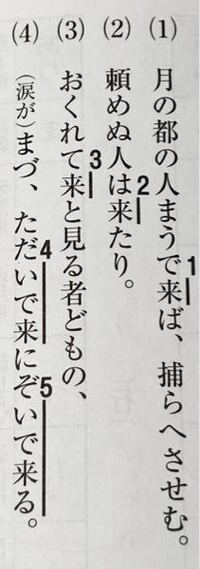 (1) 月の都の人まうで来ば、捕らへさせむ。1
(2) 頼めぬ人は来たり。2
(3) おくれて来と見る者どもの、3
(4) (涙が)まづ、ただいで来にぞいで来る。4 5